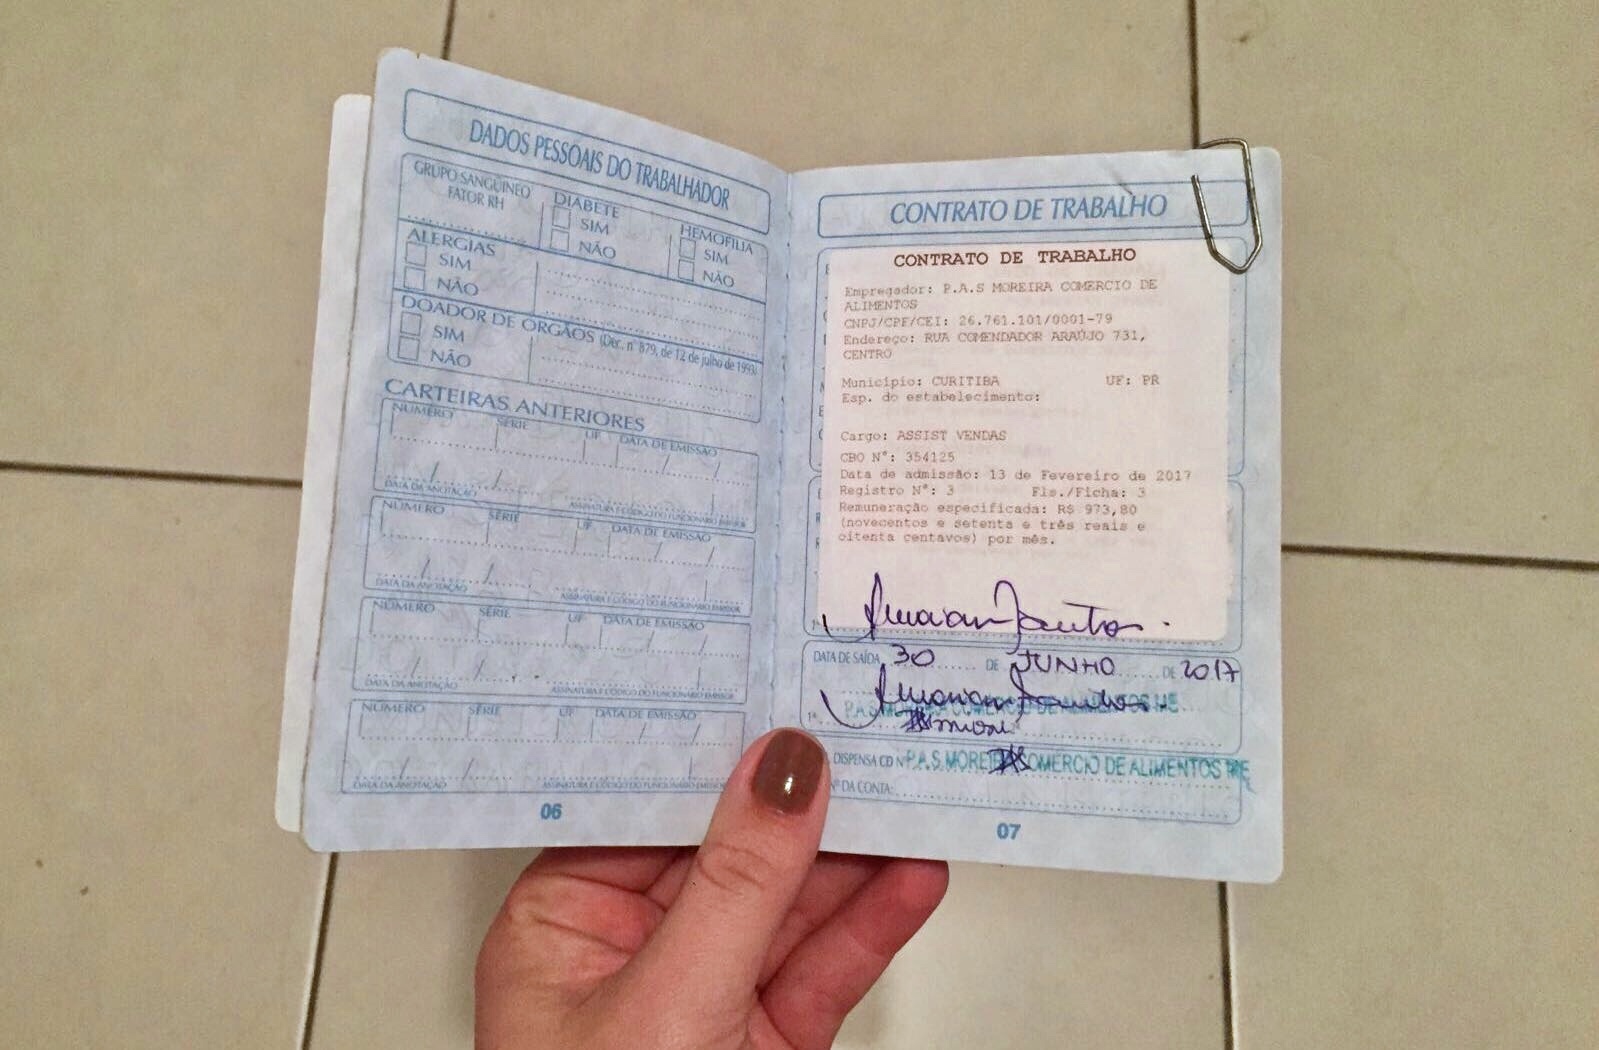 DADOS PESSOAIS DO TRABALHADOR
GRUPO SANGÜINEO
FATOR RH
DIABETE
SIM
NÃO
HEMOFILIA
SIM
NÃO
ALERGIAS
SIM
NÃO
DOADOR DE ORGÃOS (Dec. nº 879, de 12 de julho de 1993)
SIM
NÃO
CARTEIRAS ANTERIORES
NÚMERO SÉRIE UF DATA DE EMISSÃO
DATA DA ANOTAÇÃO ASSINATURA E CÓDIGO DO FUNCIONÁRIO EMISSOR
NÚMERO SÉRIE UF DATA DE EMISSÃO
DATA DA ANOTAÇÃO ASSINATURA E CÓDIGO DO FUNCIONÁRIO EMISSOR
NÚMERO SÉRIE UF DATA DE EMISSÃO
DATA DA ANOTAÇÃO ASSINATURA E CÓDIGO DO FUNCIONÁRIO EMISSOR
NÚMERO SÉRIE UF DATA DE EMISSÃO
DATA DA ANOTAÇÃO ASSINATURA E CÓDIGO DO FUNCIONÁRIO EMISSOR
06
CONTRATO DE TRABALHO
CONTRATO DE TRABALHO
Empregador: P.A.S MOREIRA COMERCIO DE
ALIMENTOS
CNPJ/CPF/CEI: 26.761.101/0001-79
Endereço: RUA COMENDADOR ARAÚJO 731,
CENTRO
Município: CURITIBA UF: PR
Esp. do estabelecimento:
Cargo: ASSIST VENDAS
CBO N°: 354125
Data de admissão: 13 de Fevereiro de 2017
Registro N°: 3 Fls./Ficha: 3
Remuneração especificada: R$ 973,80
(novecentos e setenta e três reais e
oitenta centavos) por mês.
DATA DE SAÍDA 30 DE JUNHO DE 2017
P.A.S MOREIRA COMERCIO DE ALIMENTOS ME
DISPENSA CD Nº P.A.S MOREIRA COMERCIO DE ALIMENTOS ME
Nº DA CONTA:
07